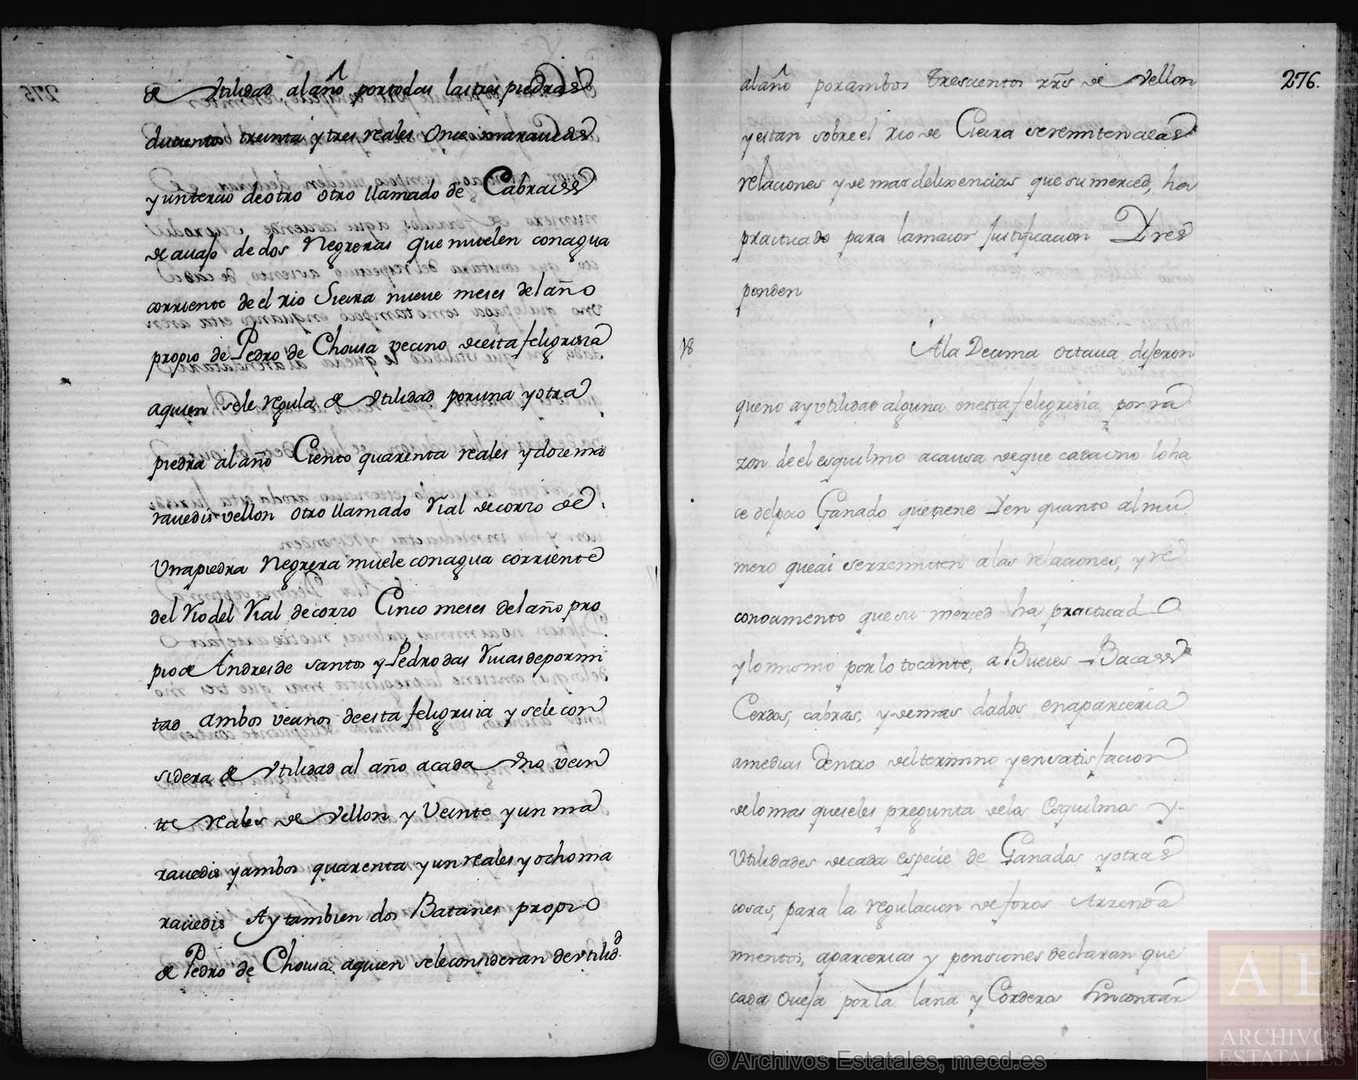 de Vtilidad al año por todas las tres piedras
ducientos treinta y tres reales once maravedis
y un tercio de otro otro llamado de Cabraes
de avajo de dos Negreras que muelen con agua
corriente de el Rio Sieira nueve meses del año
propio de Pedro de Chousa vecino de esta feligrisia
aquien sele regula de Vtilidad por una y otra
piedra al año Ciento quarenta reales y doze ma
ravedis vellon otro llamado Rial de corzo de
Una piedra Negrera muele con agua corriente
del Rio del Rial de corzo Cinco meses del año pro
pio de Andres de Santos y Pedro das Vicas de por mi
tad ambos vecinos de esta feligrisia y sele con
sidera de Vtilidad al año a cada Uno vein
te reales de Vellon y Veinte y un ma
ravedis y ambos quarenta y un reales y ocho ma
ravedis Ay tambien dos Batanes propio
de Pedro de Chousa aquien sele consideran de vtilidd
276.
al año por ambos trescientos rrs de Vellon
y estan sobre el Rio de Cieira se remiten a las
relaciones y de mas delixencias que su merced, ha
practicado para la maior justificacion Y res
ponden
18 A la Decima octava dijeron
que no ay vtilidad alguna en esta feligrisia por ra
zon de el esquilmo a causa de que cada uno lo ha
ce del poco Ganado que tiene Y en quanto al nu
mero que ai se rremiten a las relaciones, y re
conocimento que su merced ha practicado
y lo mismo por lo tocante, a Bueies Bacas
Cerdos, cabras, y demas dados en aparceria
a medias dentro del termino y en satisfacion
de lo mas que se les pregunta de los Esquilmos y
Vtilidades de cada especie de Ganados y otras
cosas, para la regulacion de foros Arrenda
mentos, aparcerias y pensiones declaran que
cada Oveja por la lana y Cordero
© Archivos Estatales, mecd.es
AE
ARCHIVOS
ESTATALES